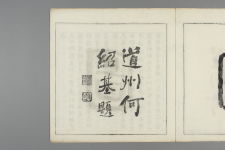 道州何
紹基題